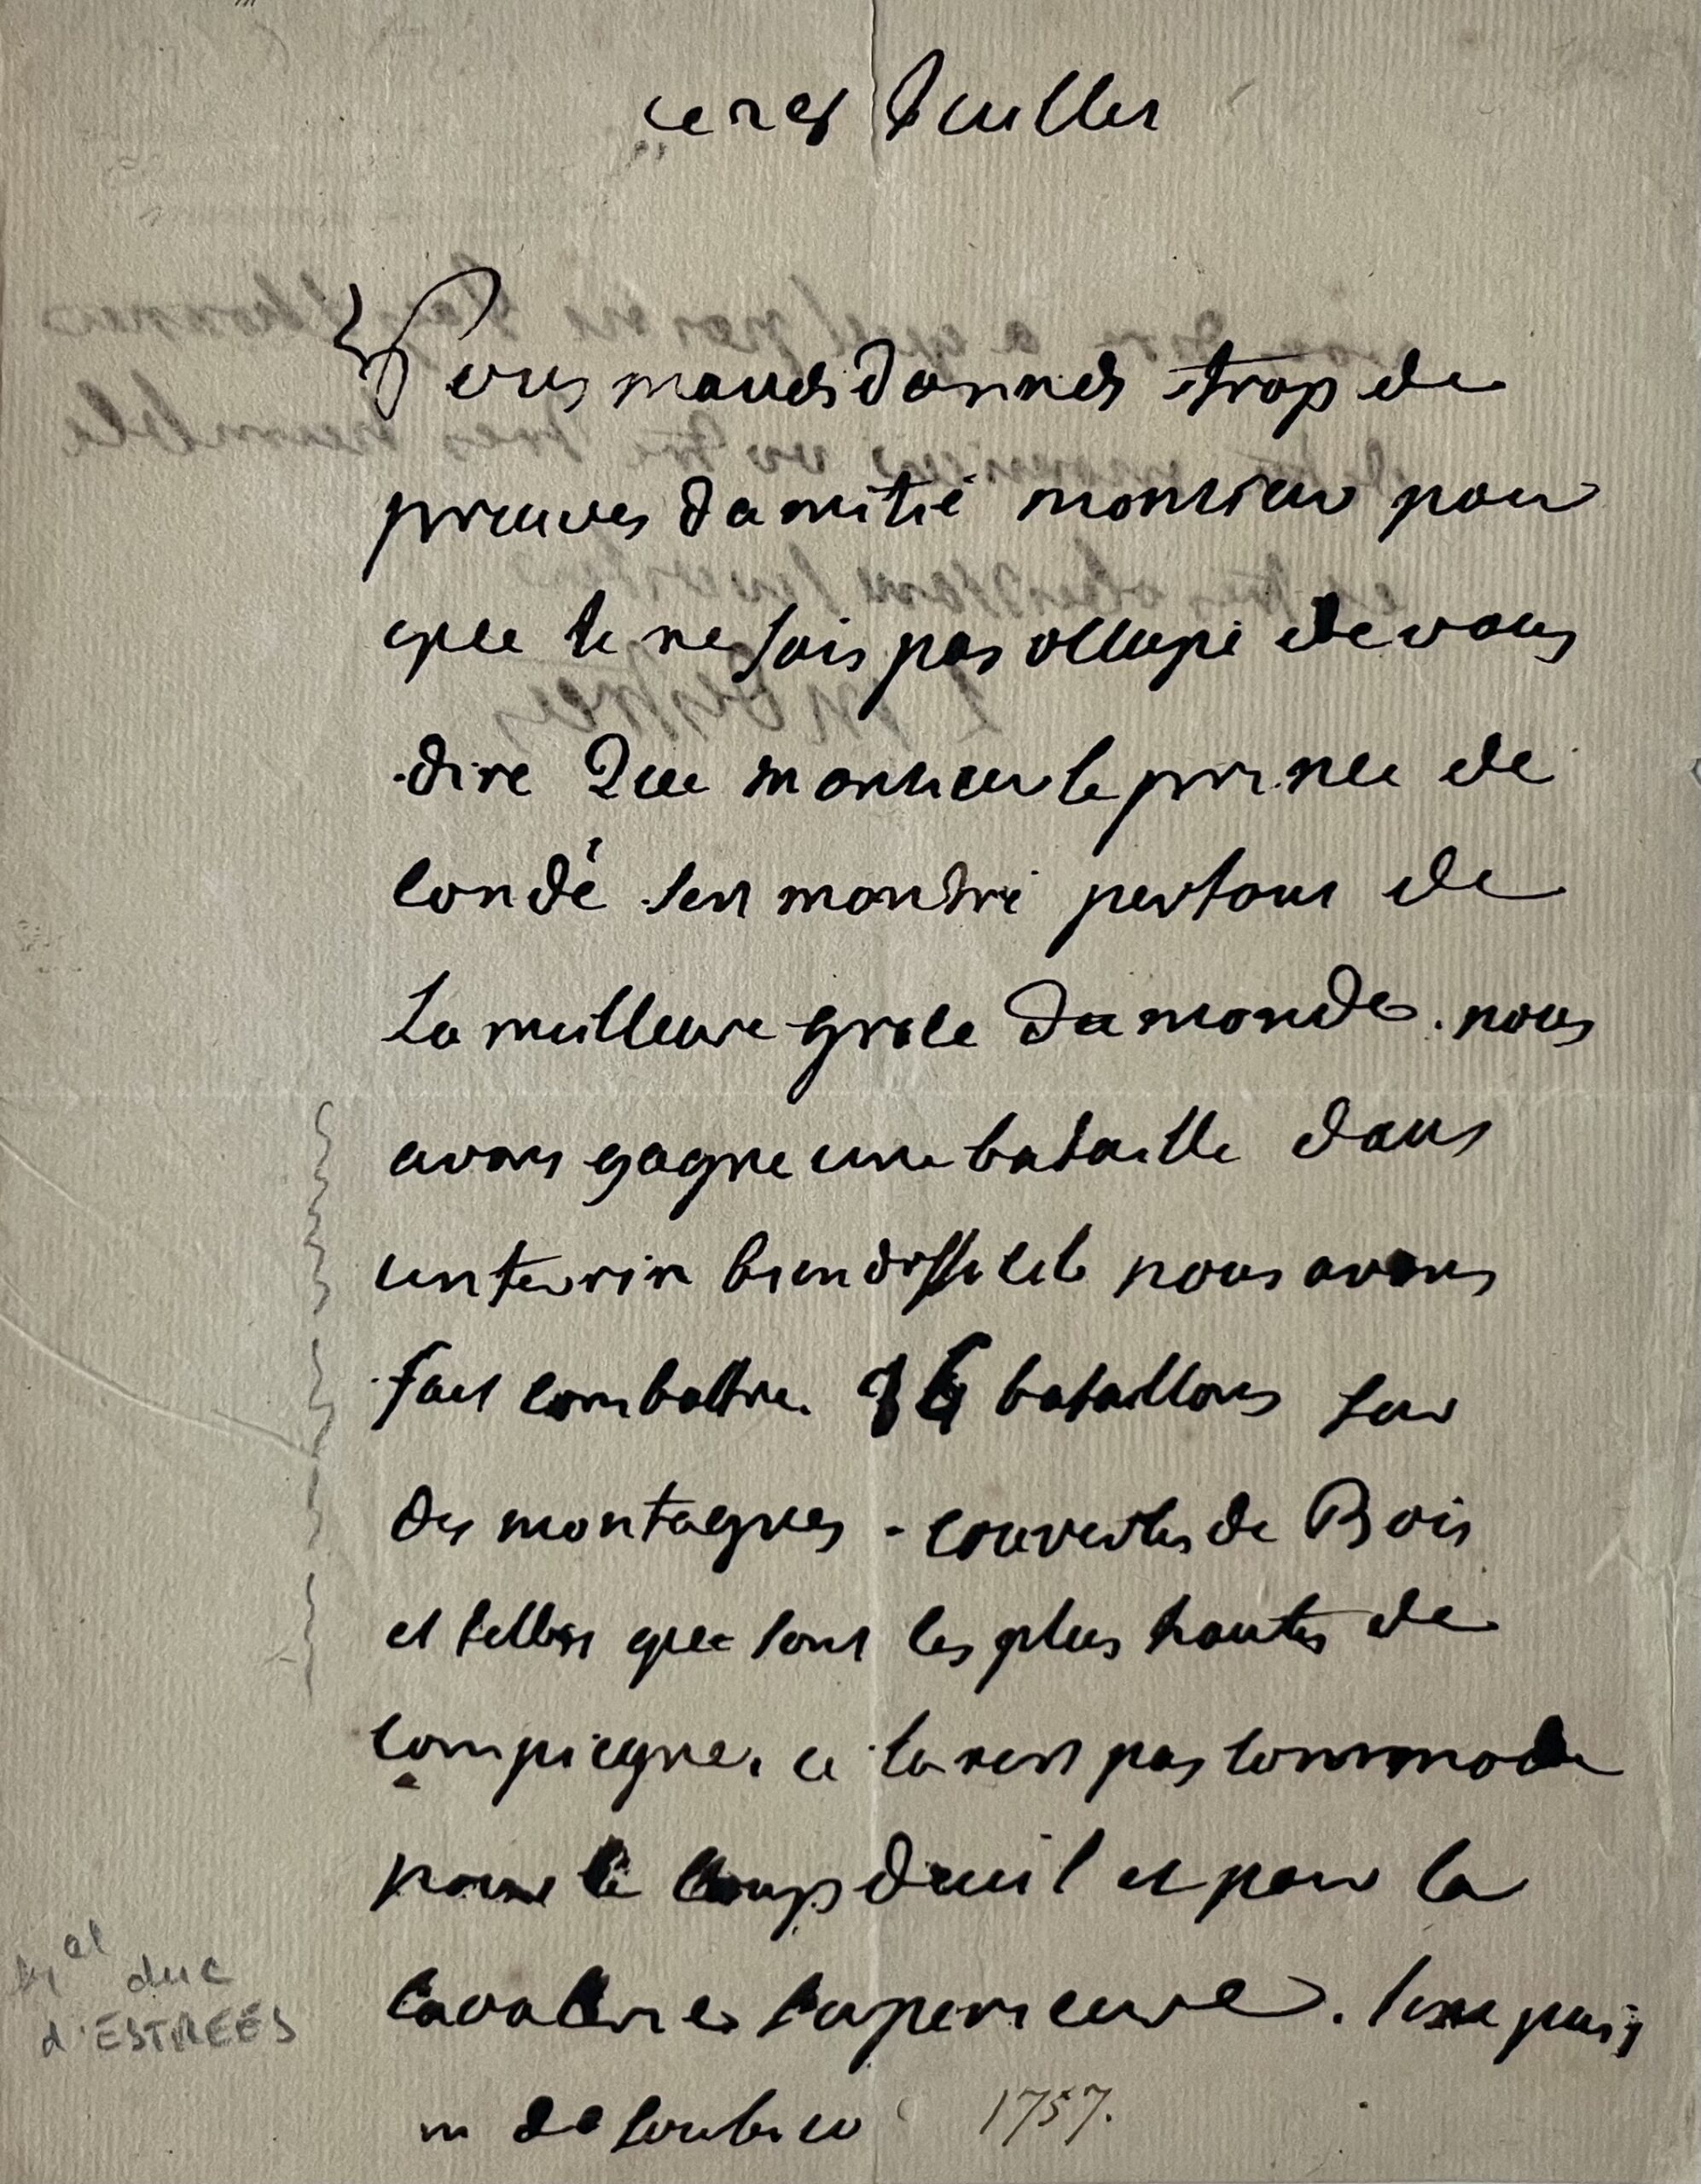 ce 28 Juillet
Vous maués donnés trop de
preuves damitié monsieur pour
que Je ne sois pas occupé de vous
dire Que monsieur le prince de
condé sest montré partout de
La meilleure grace du monde. nous
avons gagné une bataille dans
un terrin bien difficile nous avons
fait combattre bataillons sur
des montagnes couvertes de Bois
et telles que sont les plus hautes de
compiegne. ce la nest pas commode
pour le coup deuil et pour la
cavallerie superieure. Je ne puis
m de soubise 1757.
Mal duc
d'ESTREES